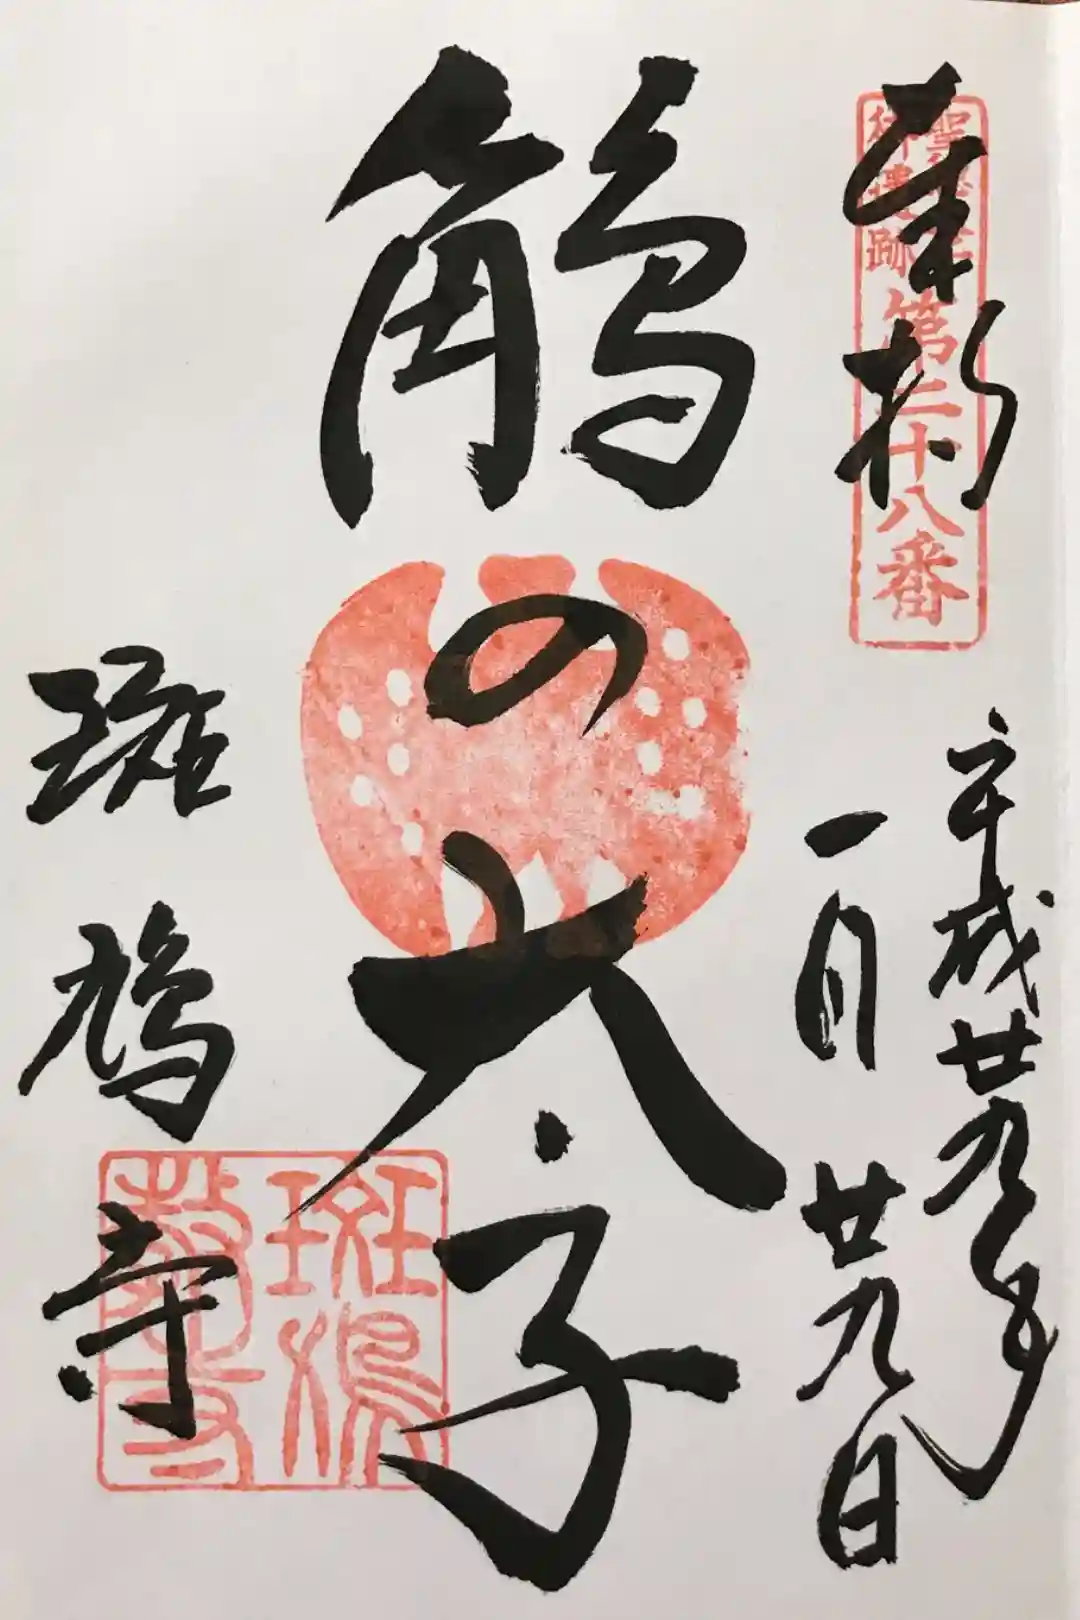 奉拝
聖徳太子
御遺跡
第二十八番
平成廿九年
一月廿九日
鵤の太子
斑鳩寺
斑鳩